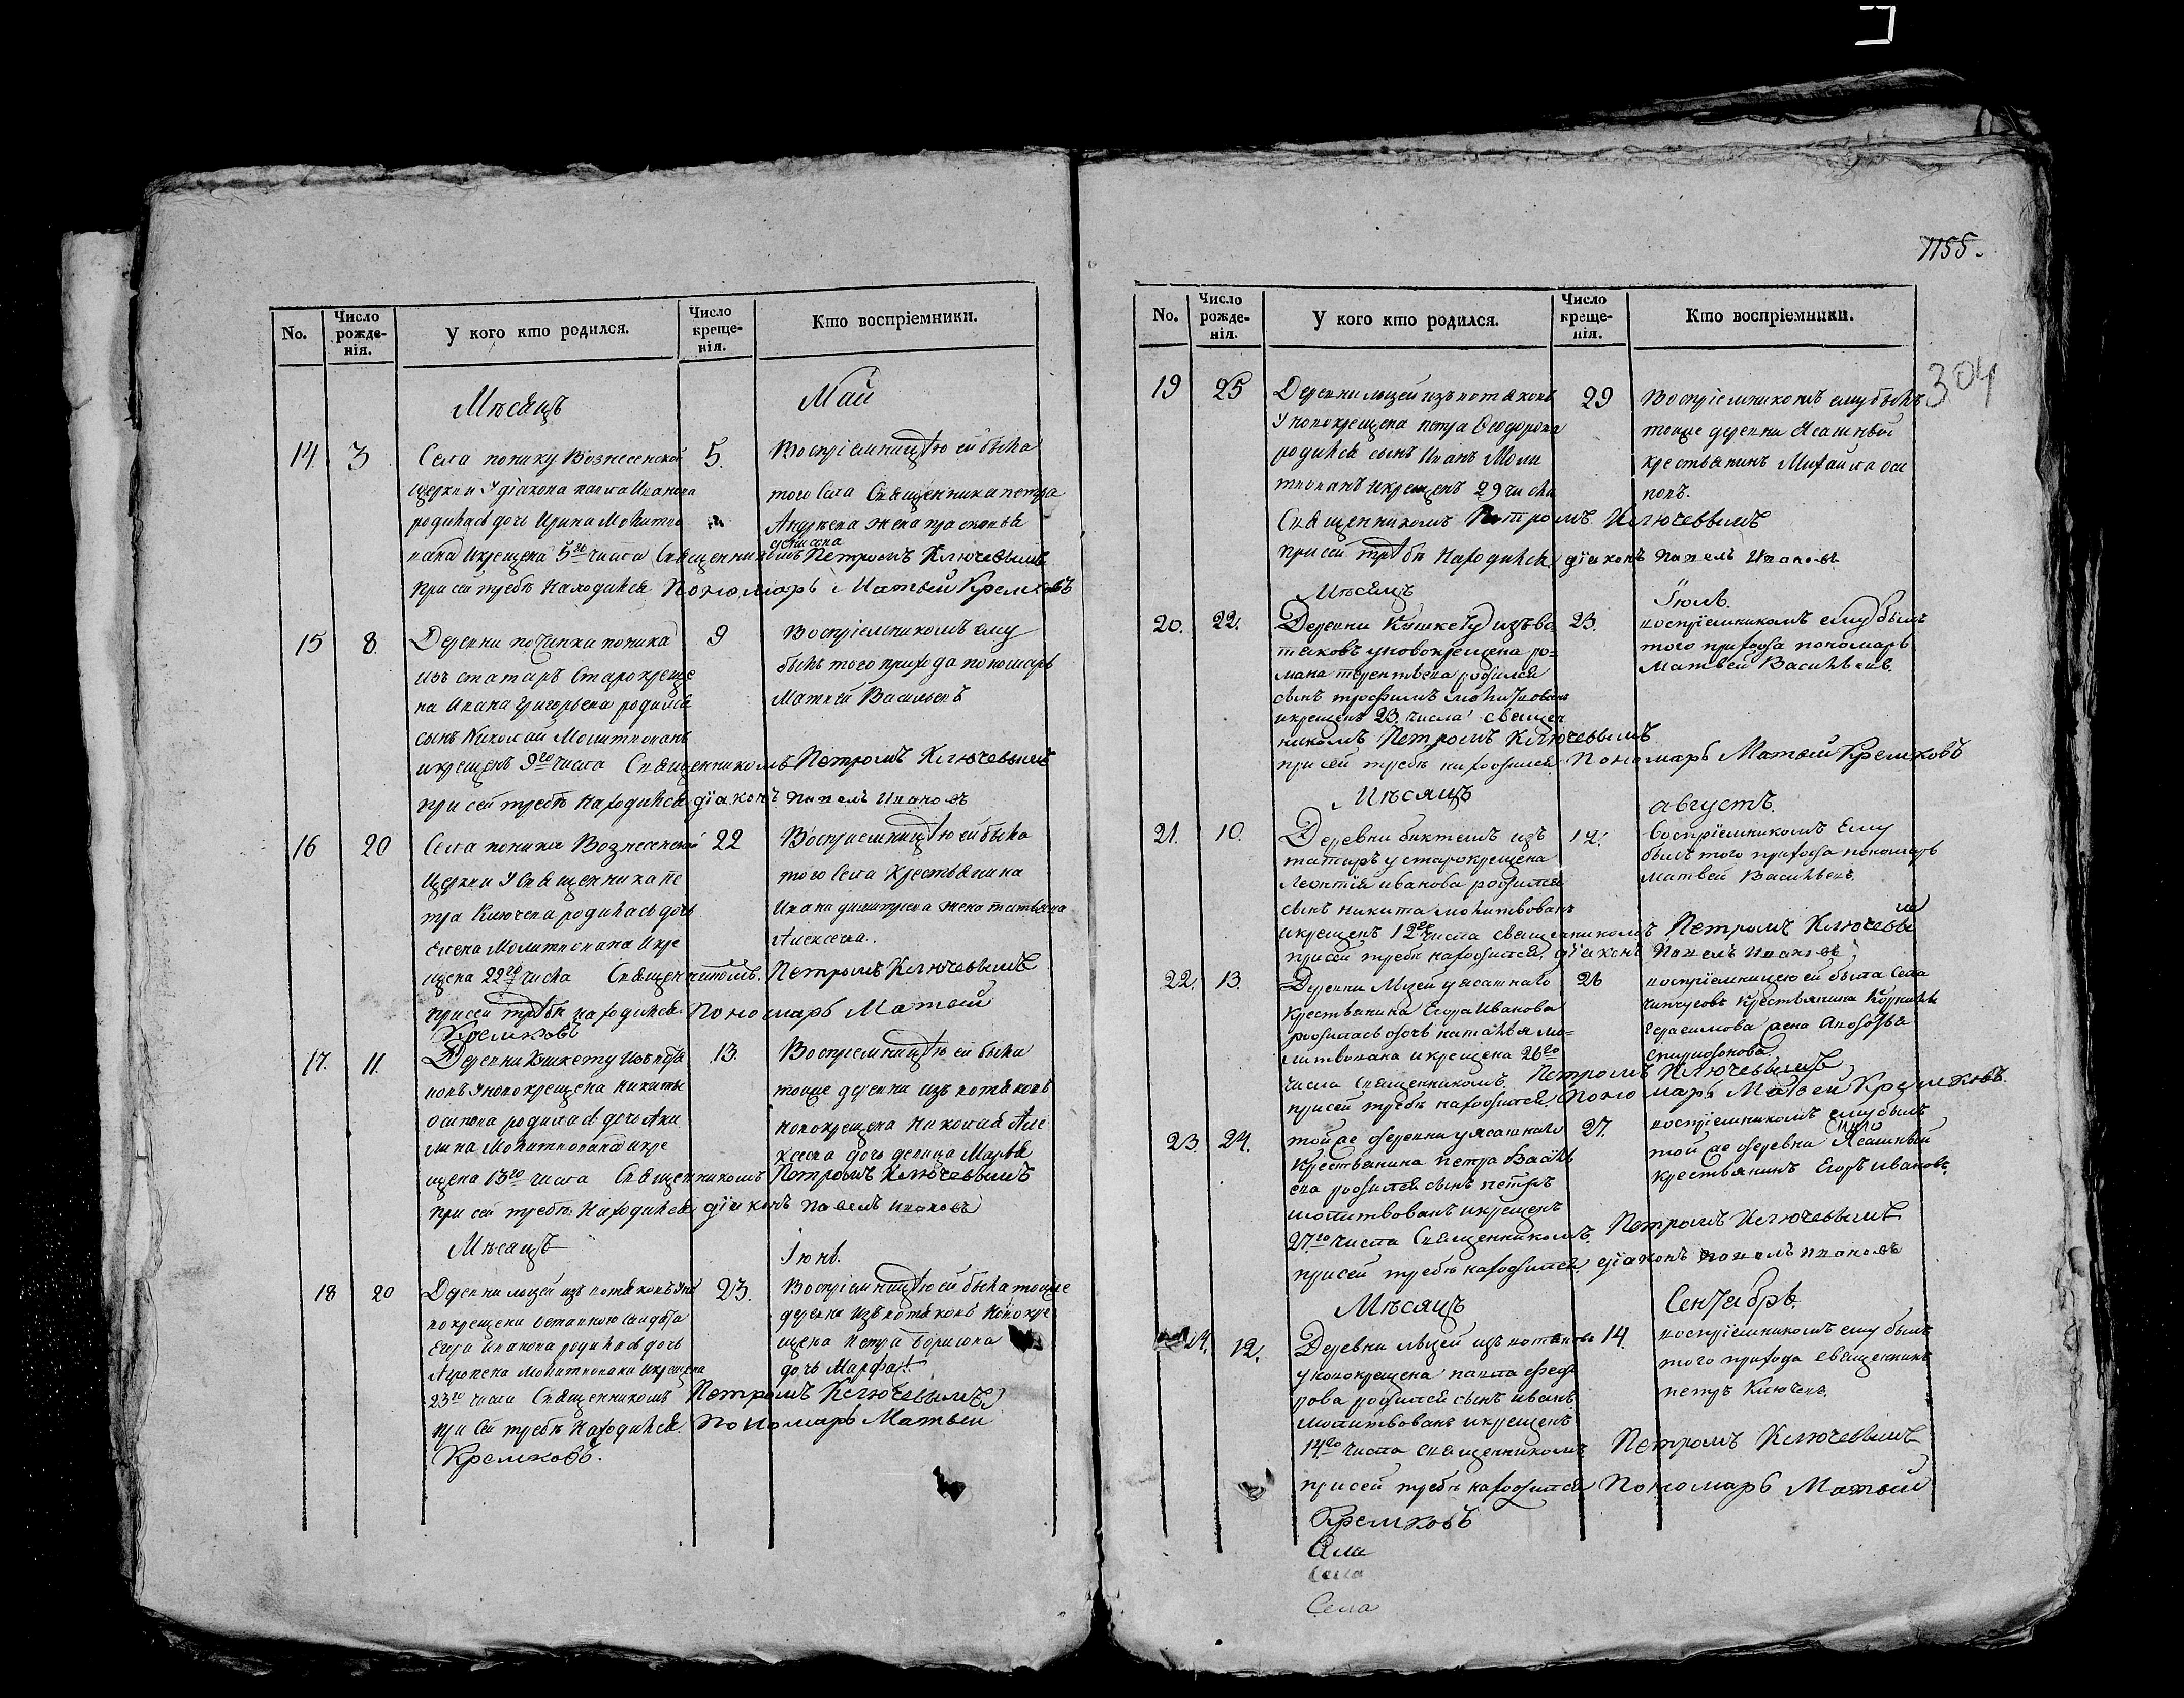 1155.
304
No.
Число рожде-нія.
У кого кто родился.
Число креще-нія.
Кто воспріемники.
Мѣсяцъ
Май
14. 3
Села понику Вознесенской
церкви у діакона павла Иванова
родилась дочь Ирина Молитво
вана и крещена 5го числа Священникомъ Петромъ Ключевымъ
при сей требѣ Находился Пономарь Матвей Кремковъ
5.
Воспріемницею ей была
того села Священника петра
Андреева жена прасковья
денисова
15 8.
Деревни починка поника
изъ татаръ Старокреще
на Ивана Григорьева родился
сынъ Николай Молитвованъ
и крещенъ 9го числа Священникомъ Петромъ Ключевымъ
при сей требѣ Находился діаконъ павелъ Ивановъ
9
Воспріемникомъ ему
былъ того прихода пономарь
Матвей Васильевъ
16 20
Села поника Вознесенской
Церкви у Священника пе
тра Ключева родилась дочь
Елена Молитвована и кре
щена 22го числа Священникомъ Петромъ Ключевымъ
при сей требѣ находился Пономарь Матвей
Кремковъ
22
Воспріемницею ей была
того Села Крестьянина
Ивана димитрева жена татьяна
Алексеева.
17. 11.
Деревни Кошкету Изъ вотя
ковъ У новокрещена никиты
осипова родилась дочь Аки
лина Молитвована и кре
щена 13го числа Священникомъ Петромъ Ключевымъ
при сей требѣ Находился діаконъ павелъ ивановъ
13.
Воспріемницею ей была
тоеже деревни изъ вотяковъ
новокрещена Николая Але
ксеева дочь девица Марѳа
Мѣсяцъ
Іюнь.
18 20
Деревни лызей изъ вотяковъ У но
вокрещена
Егора Иванова родилась дочь
Молитвована и крещена
23го числа Священникомъ Петромъ Ключевымъ
при Сей требѣ Находился Пономарь Матвей
Кремковъ.
23.
Воспріемницею ей была тоеже
деревни Изъ вотяковъ Новокре
щена Петра борисова
дочь Марфа
No.
Число рожде-нія.
У кого кто родился.
Число креще-нія.
Кто воспріемники.
19 25
Деревни лызей изъ вотяковъ
У новокрещена петра Ѳеодорова
родился сынъ Иванъ Моли
твованъ и крещенъ 29 числа
Священникомъ Петромъ Ключевымъ
при сей требѣ Находился діаконъ павелъ Ивановъ
29
Воспріемникомъ ему былъ
тоеже деревни Ясашный
крестьянинъ Михайла оси
повъ.
Мѣсяцъ
Іюль.
20. 22.
Деревни Кошкету изъ во
тяковъ у новокрещена ро=
мана терентьева родился
сынъ трофимъ молитвованъ
и крещенъ 23. числа священ
никомъ Петромъ Ключевымъ
при сей требѣ находился. Пономарь Матвей Кремковъ
23.
воспріемникомъ ему былъ
того прихода пономарь
Матвей Васильевъ.
Мѣсяцъ
августъ.
21. 10.
Деревни биктешъ изъ
татаръ у старокрещена
Леонтія иванова родился
сынъ никита молитвованъ
и крещенъ 12го числа священникомъ Петромъ Ключевы
мъ
при сей требѣ находился. діаконъ Павелъ Ивановъ
12.
Воспріемникомъ Ему
былъ того прихода пономарь
Матвей Васильевъ.
22. 13.
Деревни Лызей у ясашнаго
крестьянина Егора Иванова
родилась дочь наталья мо=
литвована и крещена 26го
числа Священникомъ Петромъ Ключевымъ
при сей требѣ находился. Пономарь Матвей Кремковъ
26
воспріемницею ей была Села
крестьянина Корнилы
герасимова жена
спиридонова.
23. 24.
той же деревни у ясашнаго
крестьянина петра Василь
ева родился сынъ петръ
молитвованъ и крещенъ
27го числа Священникомъ. Петромъ Ключевымъ
при сей требѣ находился. діаконъ павелъ ивановъ
27.
воспріемникомъ ему былъ
той же деревни Ясашный
крестьянинъ Егоръ ивановъ.
Мѣсяцъ
Сентябрь.
24. 12.
Деревни лызей изъ вотяковъ
у новокрещена павла федо
рова родился сынъ иванъ
молитвованъ и крещенъ
14го числа священникомъ Петромъ Ключевымъ
при сей требѣ находился Пономарь Матвей
Кремковъ
14.
воспріемникомъ ему былъ
того прихода священникъ
петръ Ключевъ.
Села
Села